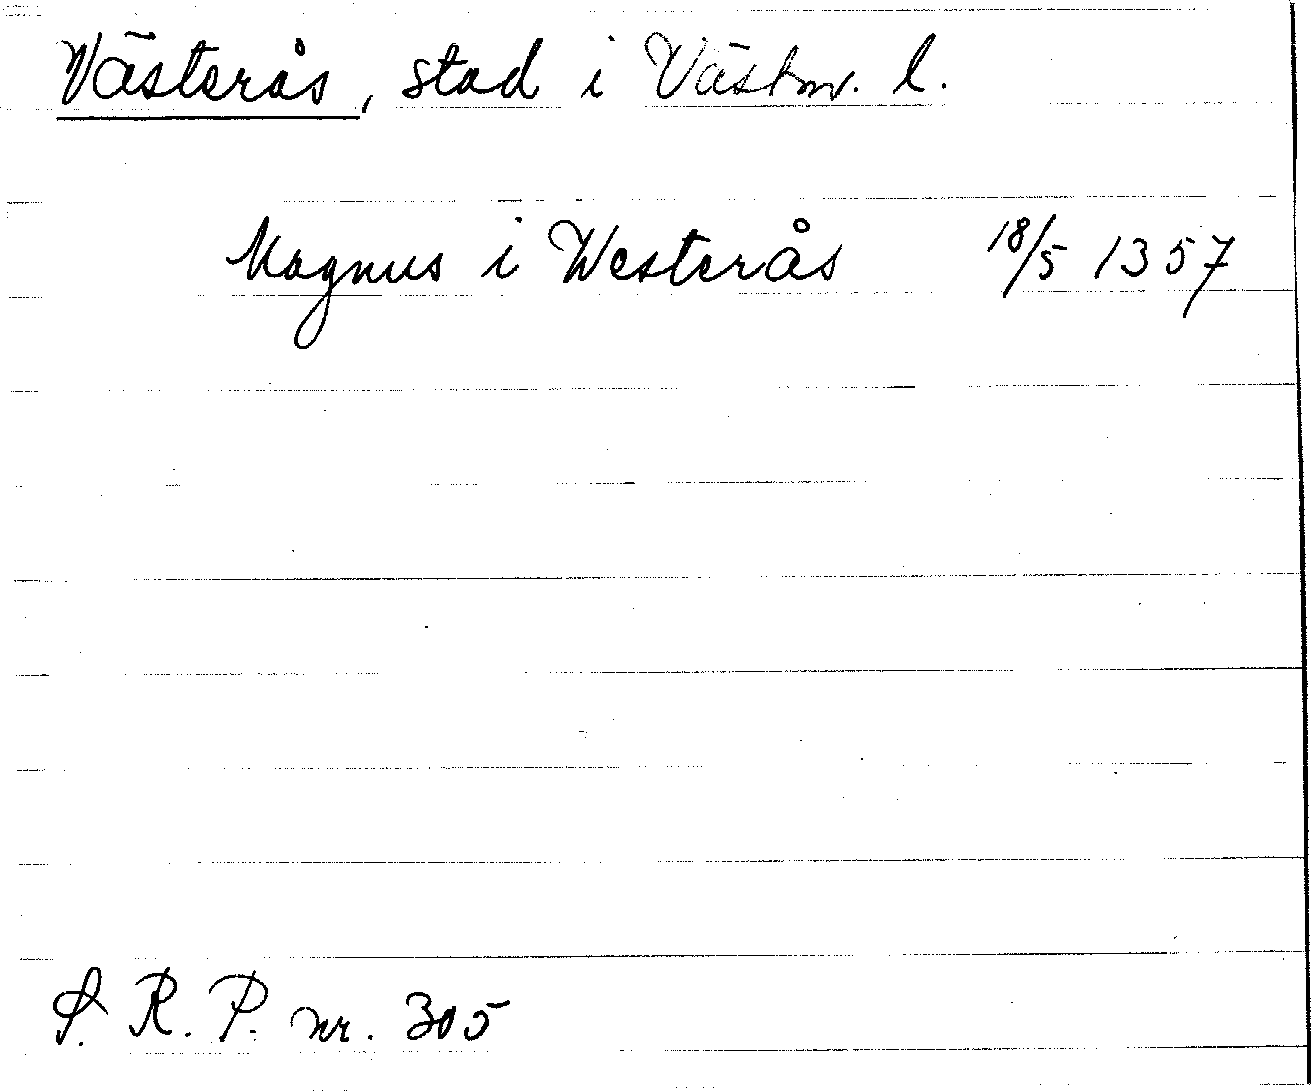 Västerås, stad i Västm. l.
Magnus i Westerås 18/5 1357
S. R. P. nr. 305